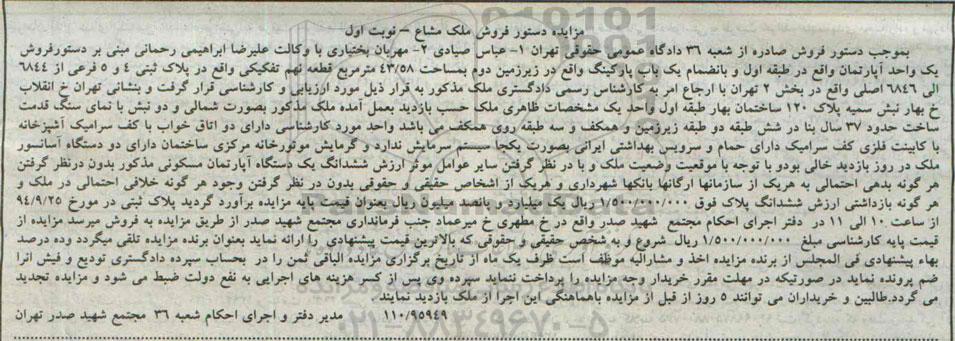 مزایده دستور فروش ملک مشاع – نوبت اول
بموجب دستور فروش صادره از شعبه ۳۶ دادگاه عمومی حقوقی تهران ۱- عباس صیادی ۲- مهربان بختیاری با وکالت علیرضا ابراهیمی رحمانی مبنی بر دستورفروش
یک واحد آپارتمان واقع در طبقه اول و بانضمام یک باب پارکینگ واقع در زیرزمین دوم بمساحت ۴۳/۵۸ مترمربع قطعه نهم تفکیکی واقع در پلاک ثبتی ۴ و ۵ فرعی از ۶۸۴۴
الی ۶۸۴۶ اصلی واقع در بخش ۲ تهران با ارجاع امر به کارشناس رسمی دادگستری ملک مذکور به قرار ذیل مورد ارزیابی و کارشناسی قرار گرفت و بنشانی تهران خ انقلاب
خ بهار نبش سمیه پلاک ۱۲۰ ساختمان بهار طبقه اول واحد یک مشخصات ظاهری ملک حسب بازدید بعمل آمده ملک مذکور بصورت شمالی و دو نبش با نمای سنگ قدمت
ساخت حدود ۳۷ سال بنا در شش طبقه دو طبقه زیرزمین و همکف و سه طبقه روی همکف می باشد واحد مورد کارشناسی دارای دو اتاق خواب با کف سرامیک آشپزخانه
با کابینت فلزی کف سرامیک دارای حمام و سرویس بهداشتی ایرانی بصورت یکجا سیستم سرمایش ندارد و گرمایش موتورخانه مرکزی ساختمان دارای دو دستگاه آسانسور
ملک در روز بازدید خالی بودو با توجه با موقعیت وضعیت ملک و با در نظر گرفتن سایر عوامل موثر ارزش ششدانگ یک دستگاه آپارتمان مسکونی مذکور بدون درنظر گرفتن
هر گونه بدهی احتمالی به هریک از سازمانها ارگانها بانکها شهرداری و هریک از اشخاص حقیقی و حقوقی بدون در نظر گرفتن وجود هر گونه خلافی احتمالی در ملک و
هر گونه بازداشتی ارزش ششدانگ پلاک فوق ۱/۵۰۰/۰۰۰/۰۰۰ ریال یک میلیارد و پانصد میلیون ریال بعنوان قیمت پایه مزایده برآورد گردید پلاک ثبتی در مورخ ۹۴/۹/۲۵
از ساعت ۱۰ الی ۱۱ در دفتر اجرای احکام مجتمع شهید صدر واقع در خ مطهری خ میرعماد جنب فرمانداری مجتمع شهید صدر از طریق مزایده به فروش میرسد مزایده از
قیمت پایه کارشناسی مبلغ ۱/۵۰۰/۰۰۰/۰۰۰ ریال شروع و به شخص حقیقی و حقوقی که بالاترین قیمت پیشنهادی را ارائه نماید بعنوان برنده مزایده تلقی میگردد وده درصد
بهاء پیشنهادی فی المجلس از برنده مزایده اخذ و مشارالیه موظف است ظرف یک ماه از تاریخ برگزاری مزایده الباقی ثمن را در بحساب سپرده دادگستری تودیع و فیش انرا
ضم پرونده نماید در صورتیکه در مهلت مقرر خریدار وجه مزایده را پرداخت ننماید سپرده وی پس از کسر هزینه های اجرایی به نفع دولت ضبط می شود و مزایده تجدید
می گردد.طالبین و خریداران می توانند ۵ روز از قبل از مزایده باهماهنگی این اجرا از ملک بازدید نمایند.
۱۱۰/۹۵۹۴۹ مدیر دفتر و اجرای احکام شعبه ۳۶ مجتمع شهید صدر تهران
۰۲۱-۸۸۳۴۹۶۷۰-۵